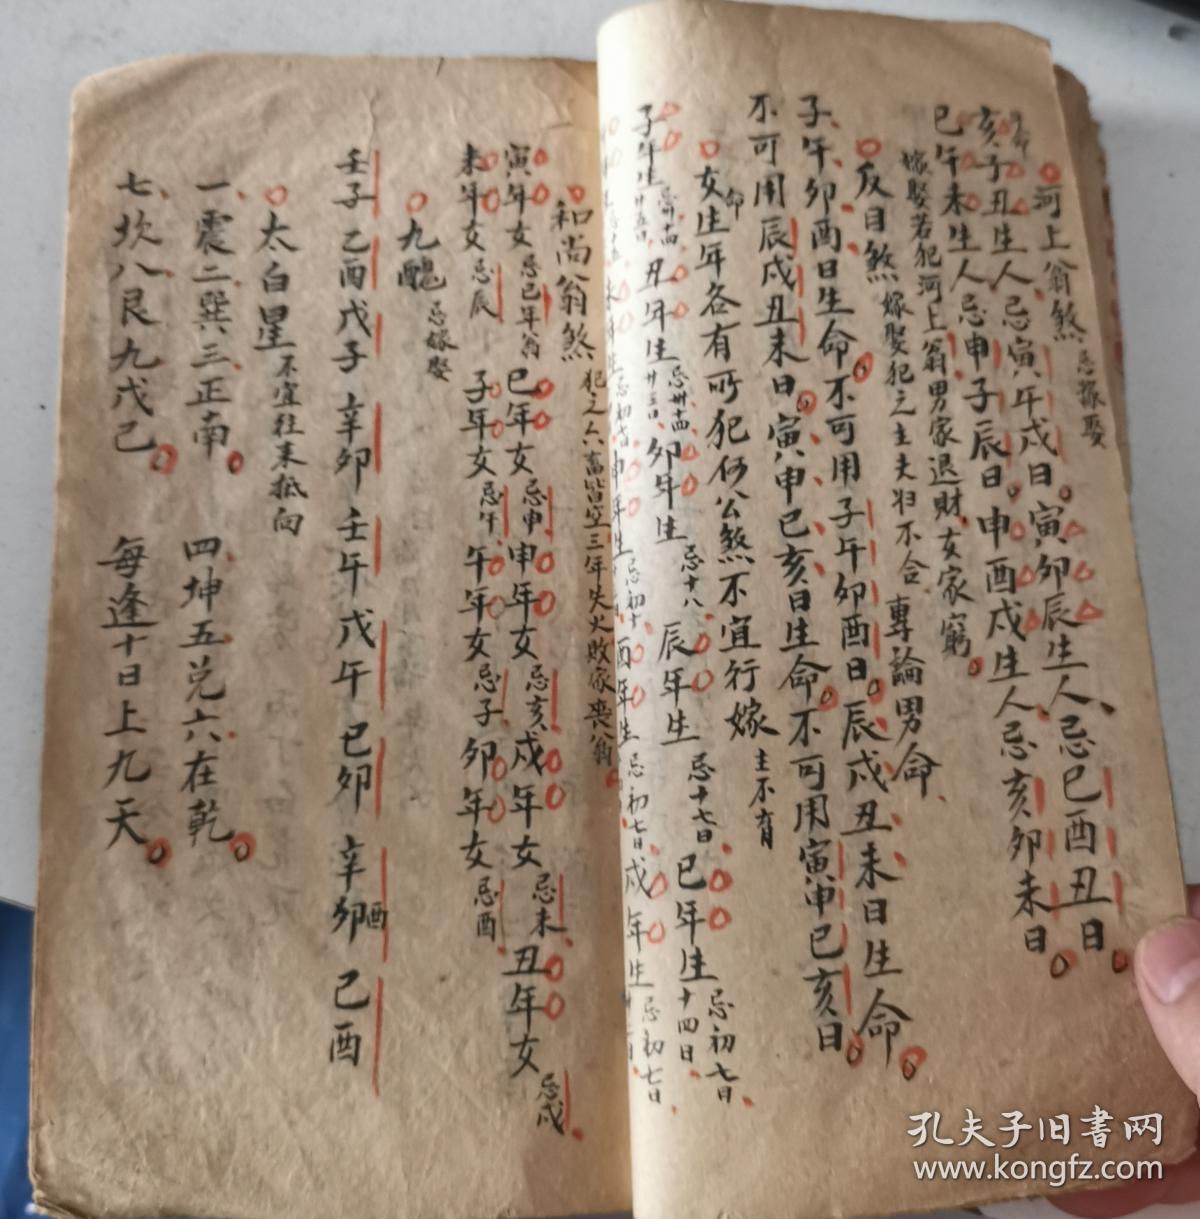 河上翁煞 忌嫁娶
男命
亥子丑生人忌寅午戌日寅卯辰生人忌巳酉丑日
巳午未生人忌申子辰日申酉戌生人忌亥卯未日
嫁娶若犯河上翁男家退財女家窮 專論男命
反目煞 嫁娶犯之主夫妇不合
子午卯酉日生命不可用子午卯酉日辰戌丑未日生命
不可用辰戌丑未日寅申巳亥日生命不可用寅申巳亥日
女生年各有所犯何公煞不宜行嫁 主不育
命
子年生 丑年生 卯年生 忌十八 辰年生 忌十七日 巳年生 忌初七日 十四日
未年生 忌初七日 申年生 忌初十 酉年生 忌初七日 戌年生 忌初七日
和尚翁煞 犯之六畜皆空三年失火敗家喪翁
寅年女 忌巳年翁 巳年女 忌申 申年女 忌亥 戌年女 忌未 丑年女 忌戌
未年女 忌辰 子年女 忌午 午年女 忌子 卯年女 忌酉
九醜 忌嫁娶
壬子 乙酉 戊子 辛卯 壬午 戊午 己卯 辛卯 己酉
酉
太白星 不宜往来抵向
一震二巽三正南 四坤五兑六在乾
七坎八艮九戊己 每逢十日上九天
孔夫子旧書网
www.kongfz.com